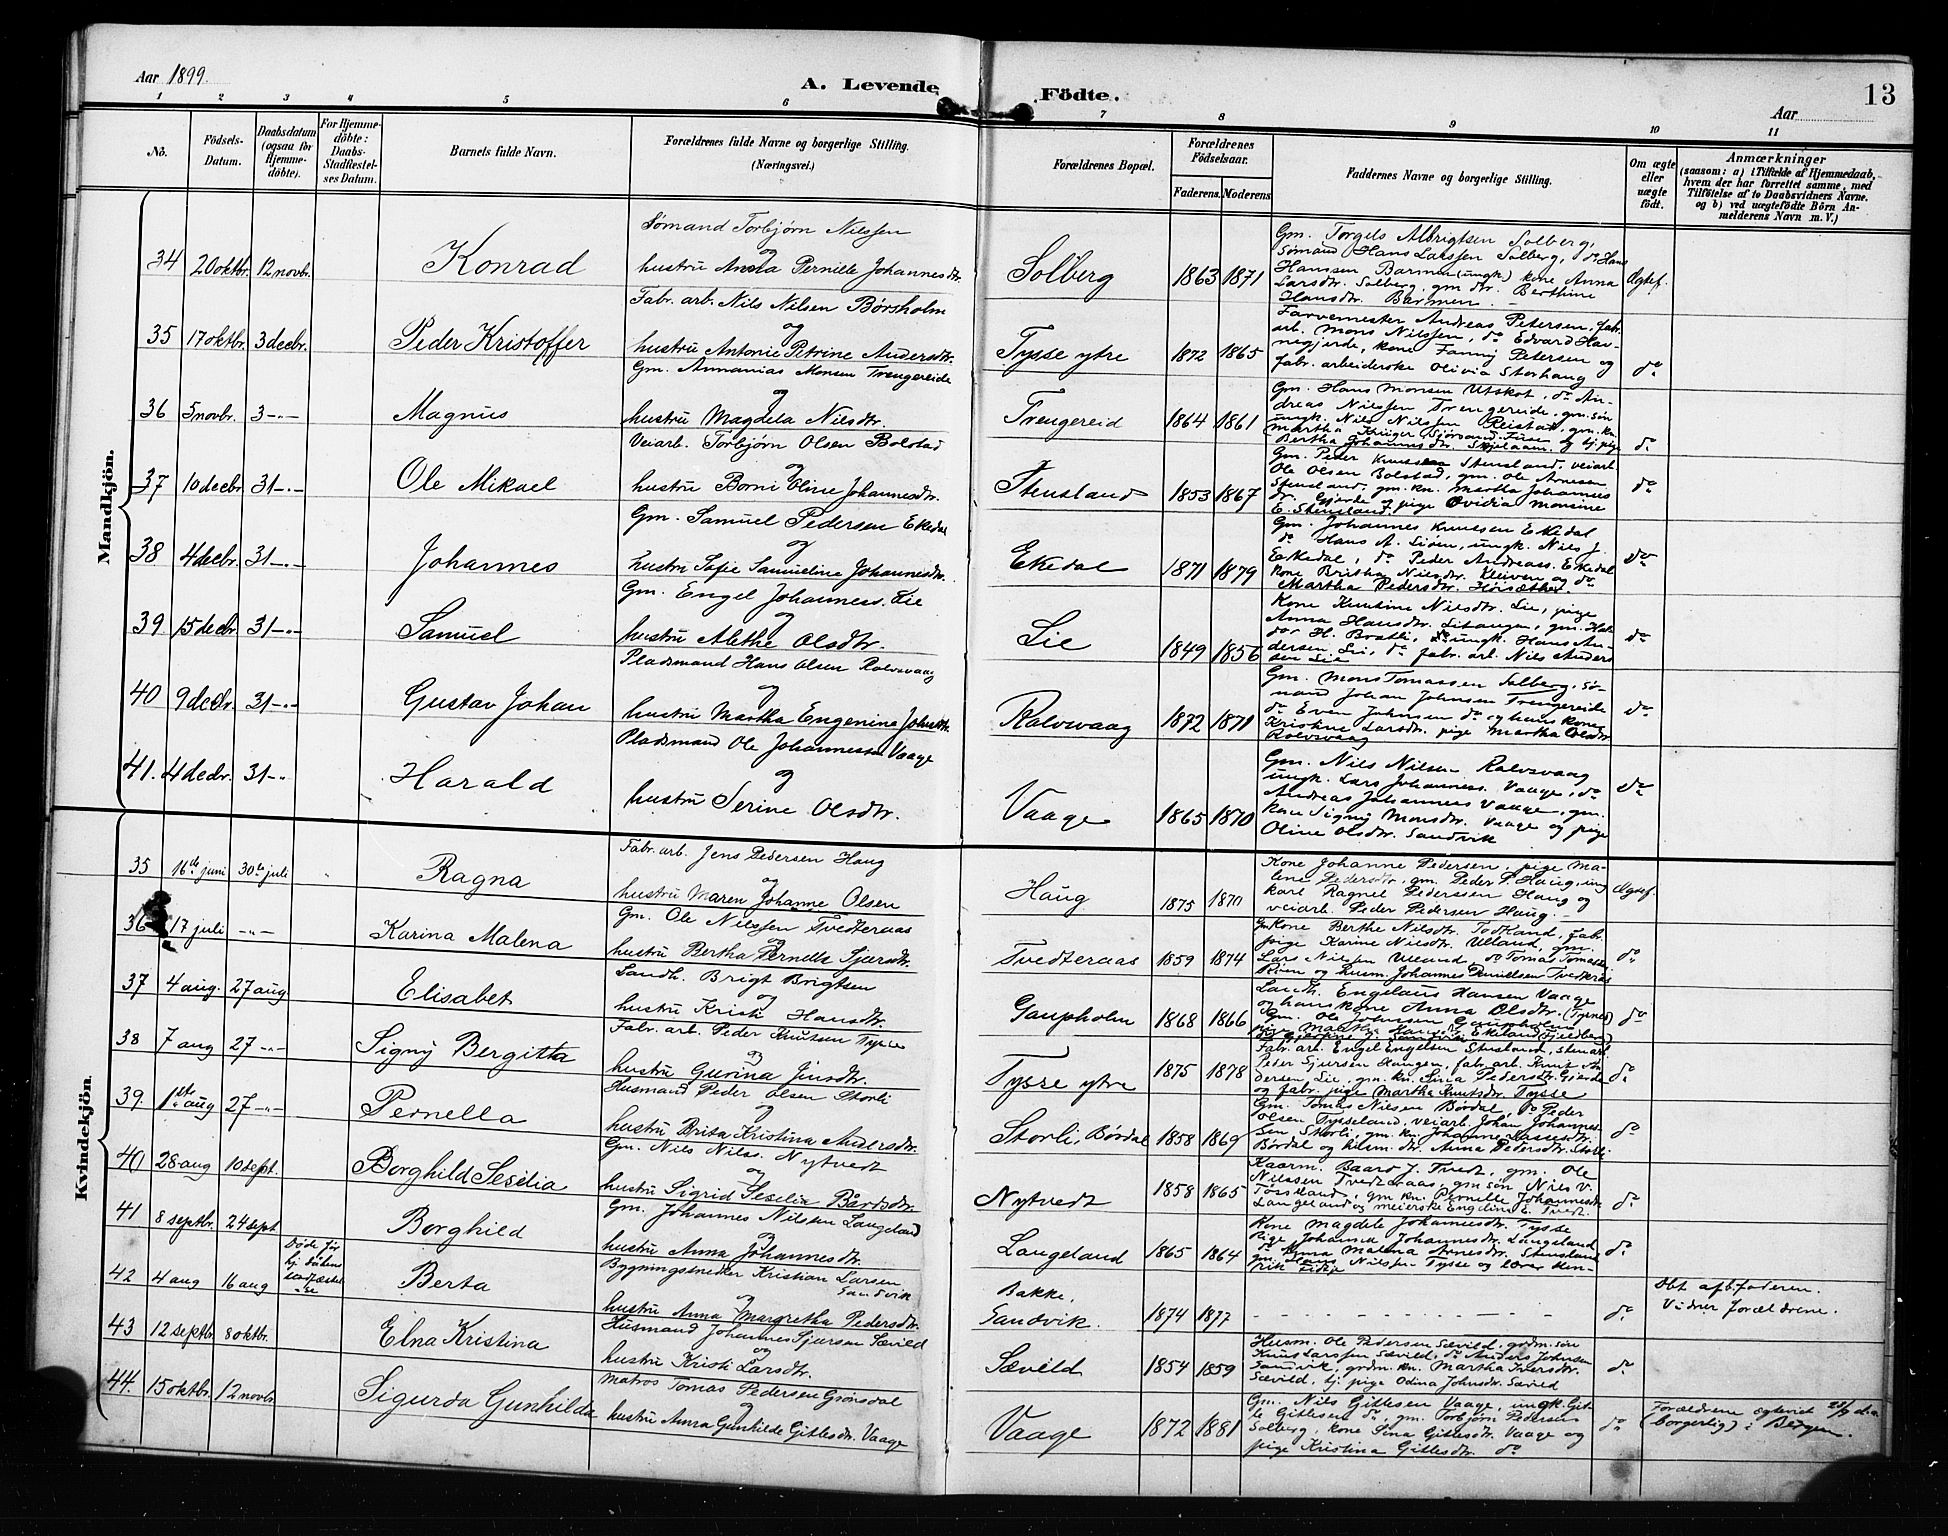 Aar 1899.
A. Levende Födte.
Aar
13
1 2 3 4 5 6 7 8 9 10 11
No.
Födsels-Datum.
Daabsdatum (ogsaa for Hjemmedöbte).
For Hjemmedöbte: Daabs-Stadfestelses Datum.
Barnets fulde Navn.
Forældrenes fulde Navne og borgerlige Stilling. (Næringsvei.)
Forældrenes Bopæl.
Forældrenes Födselsaar.
Faderens. Moderens.
Faddernes Navne og borgerlige Stilling.
Om ægte eller uægte födt.
Anmærkninger
(saasom: a) i Tilfælde af Hjemmedaab, hvem der har forrettet samme, med Tilföielse af to Daabsvidners Navne. og b) ved uægtefödte Börn Anmelderens Navn m. V.)
Mandkjön.
34 20 oktbr. 12 novbr. Konrad
Sømand Torbjørn Nilssen
og
hustru Anna Pernille Johannesdtr
Solberg 1863 1871
Gm. Torgels Albrigtsen Solberg,
Sømand Hans Larssen Solberg, do Hans
Hanssen Barmen (ungk.) kone Anna
Larsdtr. Solberg, gm. dtr. Berthine
Hansdtr. Barmen. —
Ægtef.
35 17 oktbr. 3 decbr. Peder Kristoffer
Fabr. arb. Nils Nilsen Børsholm
og
hustru Antonie Petrine Andersdtr.
Tysse ytre 1872 1865
Farvemester Andreas Petersen, fabr.
arb. Mons Nilssen, do Edvard Hav-
negjerde, kone Fanny Petersen og
fabr. arbeiderske Olivia Storhaug
do
36 5 novbr. 3 -"- Magnus
Gm. Annanias Monsen Trengereide
hustru Magdela Nilsdtr.
Trengereid 1864 1861
Gm. Hans Monsen Utskot, do An-
dreas Nilssen Trengereide, gm. søn
ungk. Nils Nilssen Reistad, gm. kn.
Bertha Johannesdtr.
do
37 10 decbr 31 -"- Ole Mikael
Veiarb. Torbjørn Olsen Bolstad
og
hustru Borni Oline Johannesdtr.
Stensland 1853 1867
Gm. Peder Knutssen Stensland, veiarb.
Ole Olsen Bolstad, gm. Ole Arnesen
Stensland, gm. kn. Martha Johannes
dr. Gjerde og pige Ovidia Monsine
E. Stensland.
do
38 4 decbr. 31 -"- Johannes
Gm. Samuel Pedersen Ekedal
og
hustru Sofie Samueline Johannesdtr.
Ekedal 1871 1879
Gm. Johannes Knutsen Ekedal
do Hans A. Siøen, ungk. Nils J.
Eekedal, do Peder Andreass. Ekedal
Kone Britha Nilsdtr. Kleiven og do
Martha Pedersdtr. Høisæther
do
39 15 decbr 31 -"- Samuel
Gm. Engel Johanness. Lie
og
hustru Alethe Olsdtr.
Lie 1849 1856
Kone Knutine Nilsdtr. Lie, pige
Anna Hansdtr. Litangen, gm. Hal
dor H. Bratli, ungk. Hans An-
dersen Lie, do fabr. arb. Nils Anders
sen Lie
do
40 9 decbr. 31 -"- Gustav Johan
Pladsmand Hans Olsen Rolvsvaag
og
hustru Martha Engenine Johnsdtr.
Rolvsvaag 1872 1871
Gm. Mons Tomassen Solberg, sø-
mand Johan Johnsen Trengereide
do Even Johnsen do og hans kone
Kristine Larsdtr. pige Martha Olsdtr
Rolvsvaag
do
41. 4 decbr. 31 -"- Harald
Pladsmand Ole Johannessen Vaage
og
hustru Serine Olsdtr.
Vaage 1865 1870
Gm. Nils Nilsen Rolvsvaag
ungk. Lars Johanness. Vaage, do
Andreas Johanness Vaage, gm.
kone Signy Monsdtr. Vaage og pige
Oline Olsdtr. Sandvik
do
Kvindekjön.
35 16de juni 30te juli Ragna
Fabr. arb. Jens Pedersen Haug
og
hustru Maren Johanne Olsen
Haug 1875 1870
Kone Johanne Pedersen, pige Ma-
lene Pedersdtr, gm. Peder P. Haug, ung
karl Ragnel Pederssen Haug og
veiarb. Peder Pedersen Haug. —
Ægtef.
36 17 juli -"- Karina Malena
Gm. Ole Nilssen Tvedteraas
og
hustru Bertha Pernelle Sjursdtr.
Tvedteraas 1859 1874
Kone Berthe Nilsdtr. , fabr.
pige Karine Nilsdtr. Ulland, gm.
Lars Nilsen Ulland, do Tomas Tomassen
Røen og husm. Johannes Danielsen Tvedteraas
do
37 4 aug. 27 aug Elisabet
Landh. Brigt Brigtsen
og
hustru Kristi Hansdtr.
Gaupholm 1868 1866
Landh. Engelaus Hansen Vaage
og hans kone Anna Olsdtr. (Tysnes)
Gm. Ole Johnsen Gaupholm
pige Martha
do
38 7 aug 27 -"- Signy Bergitta
Fabr. arb. Peder Knutsen Tysse
og
hustru Gurina Jensdtr.
Tysse ytre 1875 1878
Fabr. arb. Engel Engelsen Stensland, stenarb.
Peder Sjursen Haugen, fabr. arb. Knut An
dersen Lie, gm. kn. Sina Pedersdtr. Gjerde
og fabr. pige Martha Knutsdtr. Tysse
do
39. 1ste aug 27 -"- Pernella
Husmand Peder Olsen Storli
og
hustru Brita Kristina Andersdtr.
Storli, Børdal 1858 1869
Gm. Tomas Nilsen Børdal, do Peder
Olsen Tysseland, veiarb. Johan Johannes-
sen Storli, gm. kn. Johanne Lassesdtr.
Børdal og husm. dtr. Anna Pedersdtr. Storli
do
40 28 aug 10 sept. Borghild Sesilia
Gm. Nils Nilss. Nytvedt
og
hustru Sigrid Seselia Bårdsdtr.
Nytvedt 1858 1865
Kaarm. Baard J. Tvedt, gm. Ole
Nilssen Tvedteraas, gm. søn Nils V.
Tøsseland, gm kn. Pernelle Johannesdtr
Langeland og meierske Engeline E. Tvedt.
do
41 8 septbr. 24 sept Borghild
Gm. Johannes Nilsen Langeland
hustru Anna Johannesdtr.
Langeland 1865 1864
Kone Magdele Johannesdtr. Tysse
Pige Johanna Johannesdtr. Langeland
do Anna Malena Arnesdtr. Stensland
gm. Hans Nilssen Tysse og lærer Hen-
rik
do
42 4 aug 16 aug
Døde før
Berta
Bygningssnedker Kristian Larsen
Sandvik
og
hustru Anna Margretha Pedersdtr.
Bakke,
Sandvik. 1874 1877
— — — — — —
do
Dbt af b. faderen.
Vidner Forældrene.
43 12 septbr. 8 oktbr. Elna Kristina
Husmand Johannes Sjursen Sævild
og
hustru Kristi Larsdtr.
Sævild 1854 1859
Husm. Ole Pedersen Sævild, grdm. søn
Knut Larssen Sævild, do Anders Johnsen
Sandvik, grdm. kn. Martha Iversdtr.
Sævild, tj. pige Odina Johnsdtr. Sævild
do
44. 15 oktbr. 12 novbr. Sigurda Gunhilda
Matros Tomas Pedersen Grønsdal
og
hustru Anna Gunhilde Gitlesdtr. Vaage
Vaage 1872 1881
Gm. Nils Gitlesen Vaage, ungk. Git-
le Gitlesen do, gm. Torbjørn Pedersen
Solberg, kone Sina Gitlesdtr. Vaage og
pige Kristina Gitlesdtr. do
do
Forældrene ægteviet
(borgerlig) i Bergen.